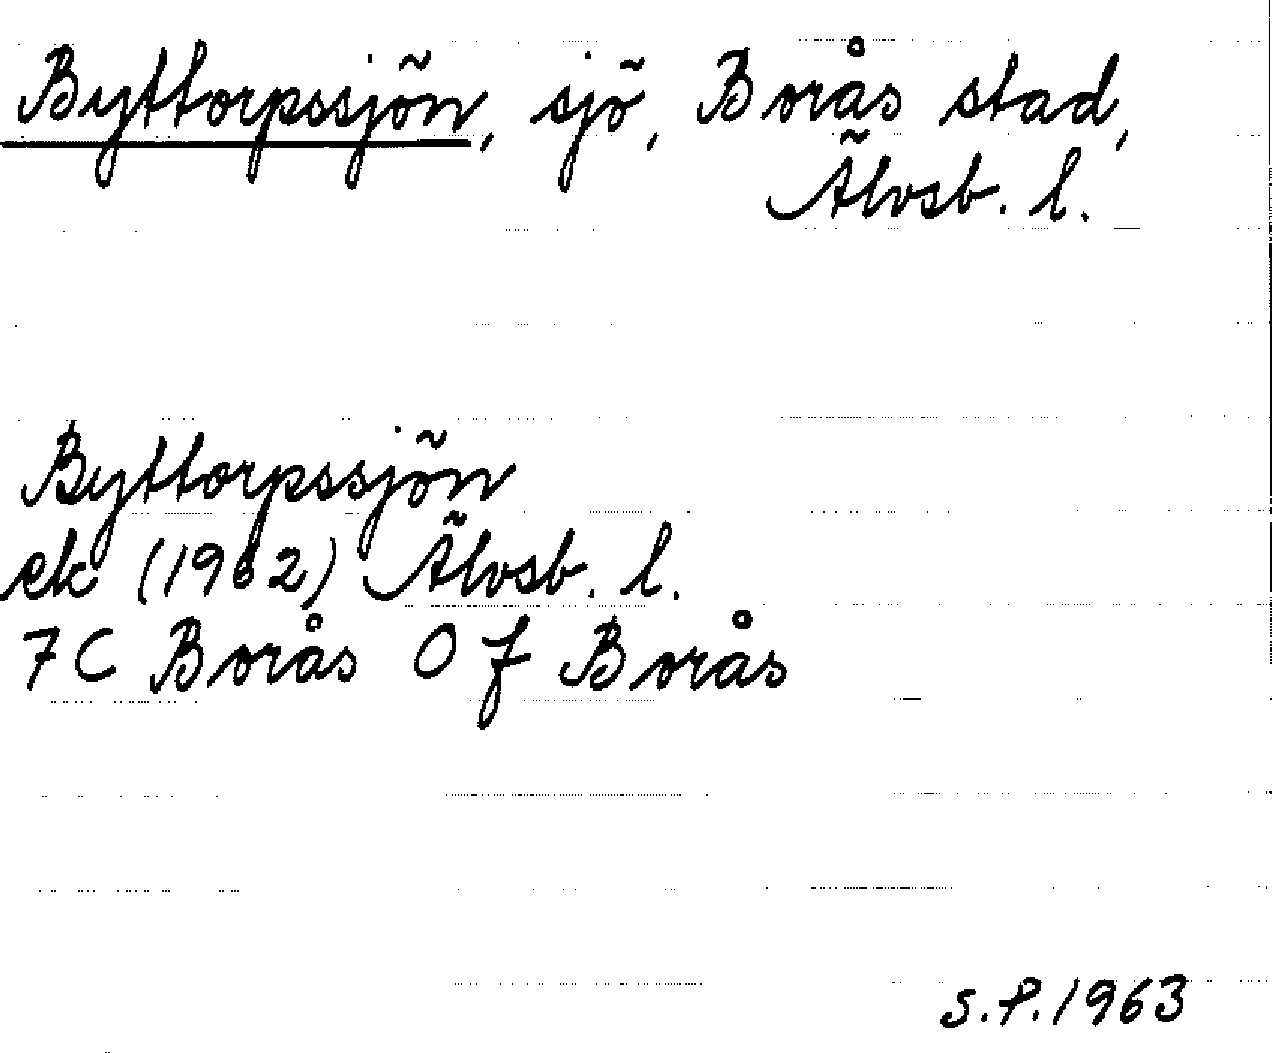 Byttorpssjön, sjö, Borås stad,
Älvsb. l.
Byttorpssjön
ek (1962) Älvsb. l.
7C Borås 0 f Borås
S.P. 1963